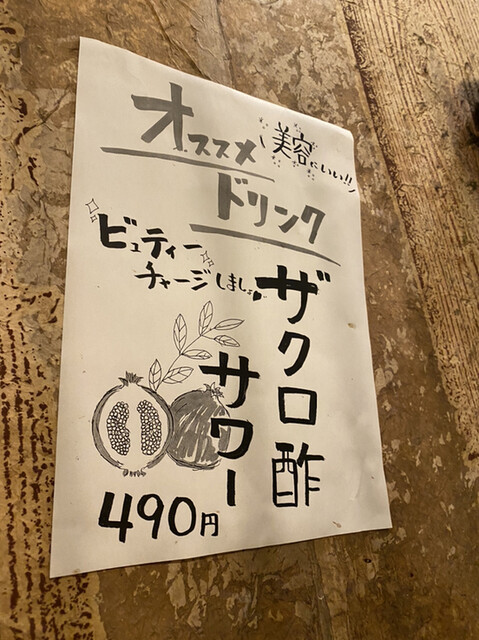 オススメ
ドリンク
美容にいい!!
ビューティー
チャージしましょ♥
ザクロ酢
サワー
490円